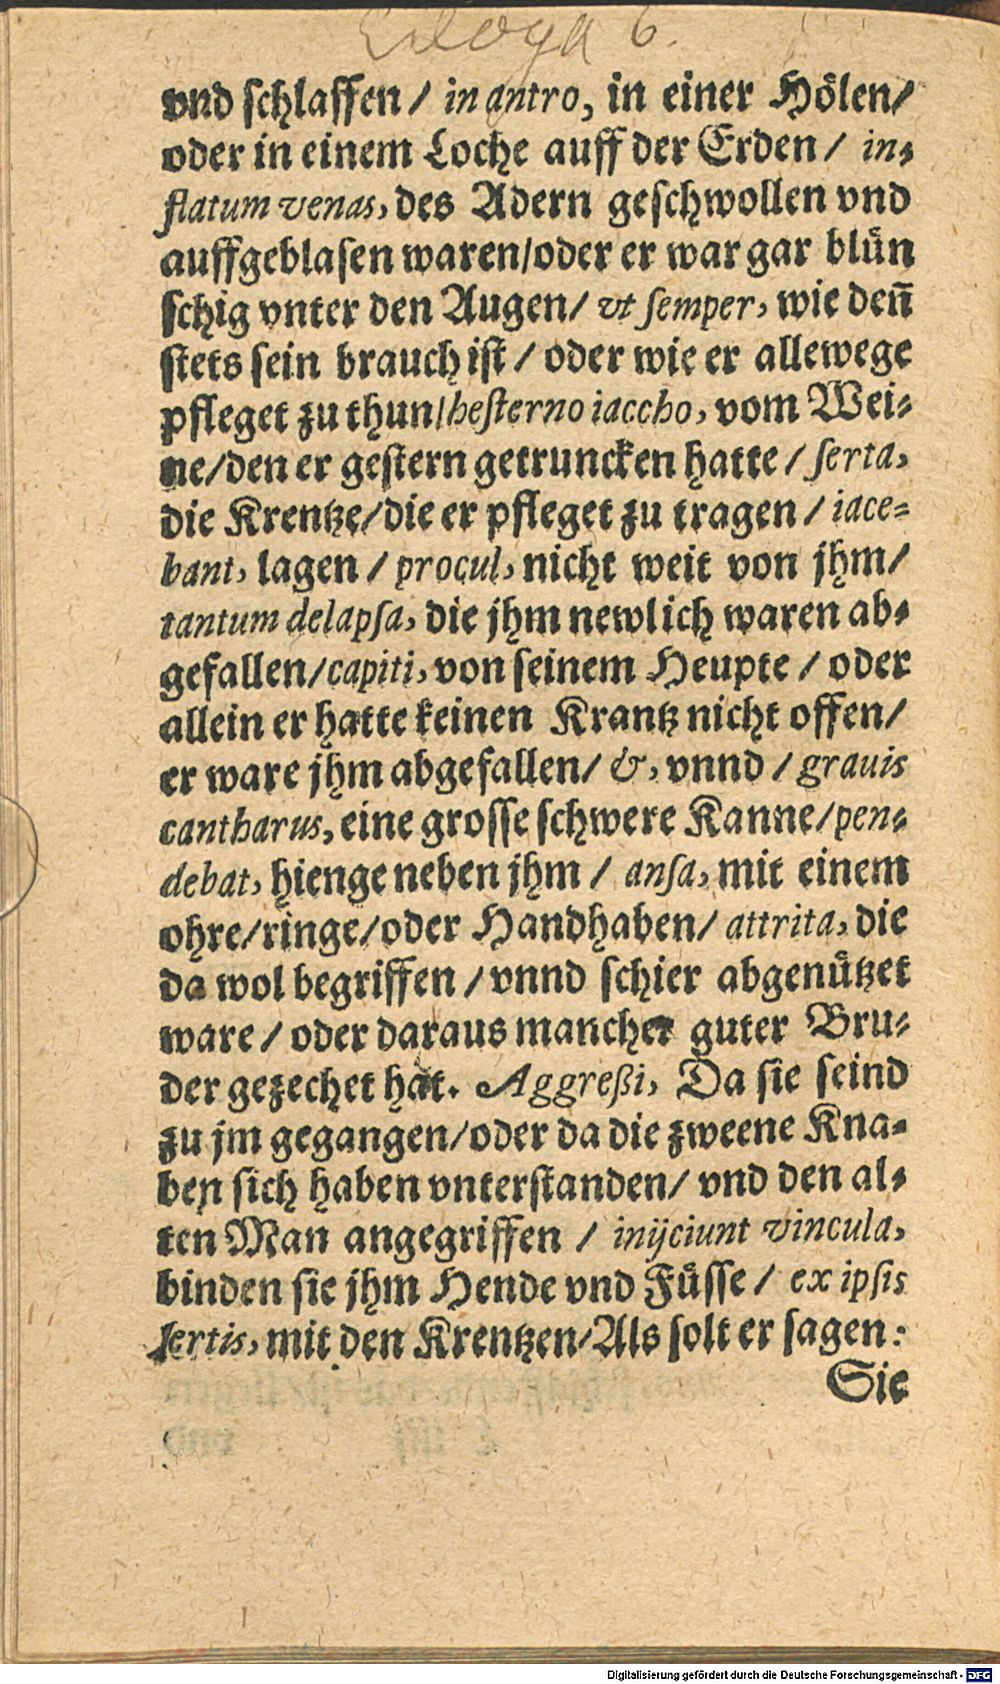 Ecloga 6.
vnd schlaffen / in antro, in einer Hoͤlen/
oder in einem Loche auff der Erden / in-
flatum venas, des Adern geschwollen vnd
auffgeblasen waren/oder er war gar bluͤn
schig vnter den Augen/ vt semper, wie deñ
stets sein brauch ist / oder wie er allewege
pfleget zu thun/hesterno iaccho, vom Wei-
ne/den er gestern getruncken hatte / serta,
die Krentze/die er pfleget zu tragen / iace-
bant, lagen / procul, nicht weit von jhm/
tantum delapsa, die jhm newlich waren ab-
gefallen/capiti, von seinem Heupte / oder
allein er hatte keinen Krantz nicht offen/
er ware jhm abgefallen/ &, vnnd / grauis
cantharus, eine grosse schwere Kanne/pen-
debat, hienge neben jhm / ansa, mit einem
ohre/ringe/oder Handhaben/ attrita, die
da wol begriffen / vnnd schier abgenuͤtzet
ware / oder daraus mancher guter Bru-
der gezechet hat. Aggreßi, Da sie seind
zu jm gegangen/oder da die zweene Kna-
ben sich haben vnterstanden/ vnd den al-
ten Man angegriffen / inijciunt vincula,
binden sie jhm Hende vnd Fuͤsse / ex ipsis
sertis, mit den Krentzen/Als solt er sagen:
Sie
Digitalisierung gefördert durch die Deutsche Forschungsgemeinschaft - DFG